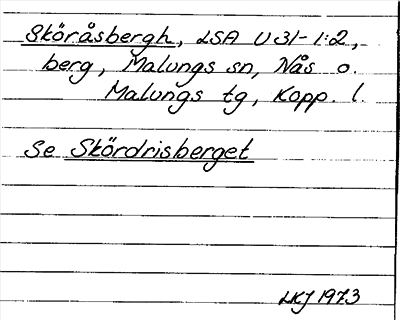 Sköråsbergh, LSA U31-1:2,
berg, Malungs sn, Nås o.
Malungs tg, Kopp. l.
Se Skördrisberget
LKJ 1973